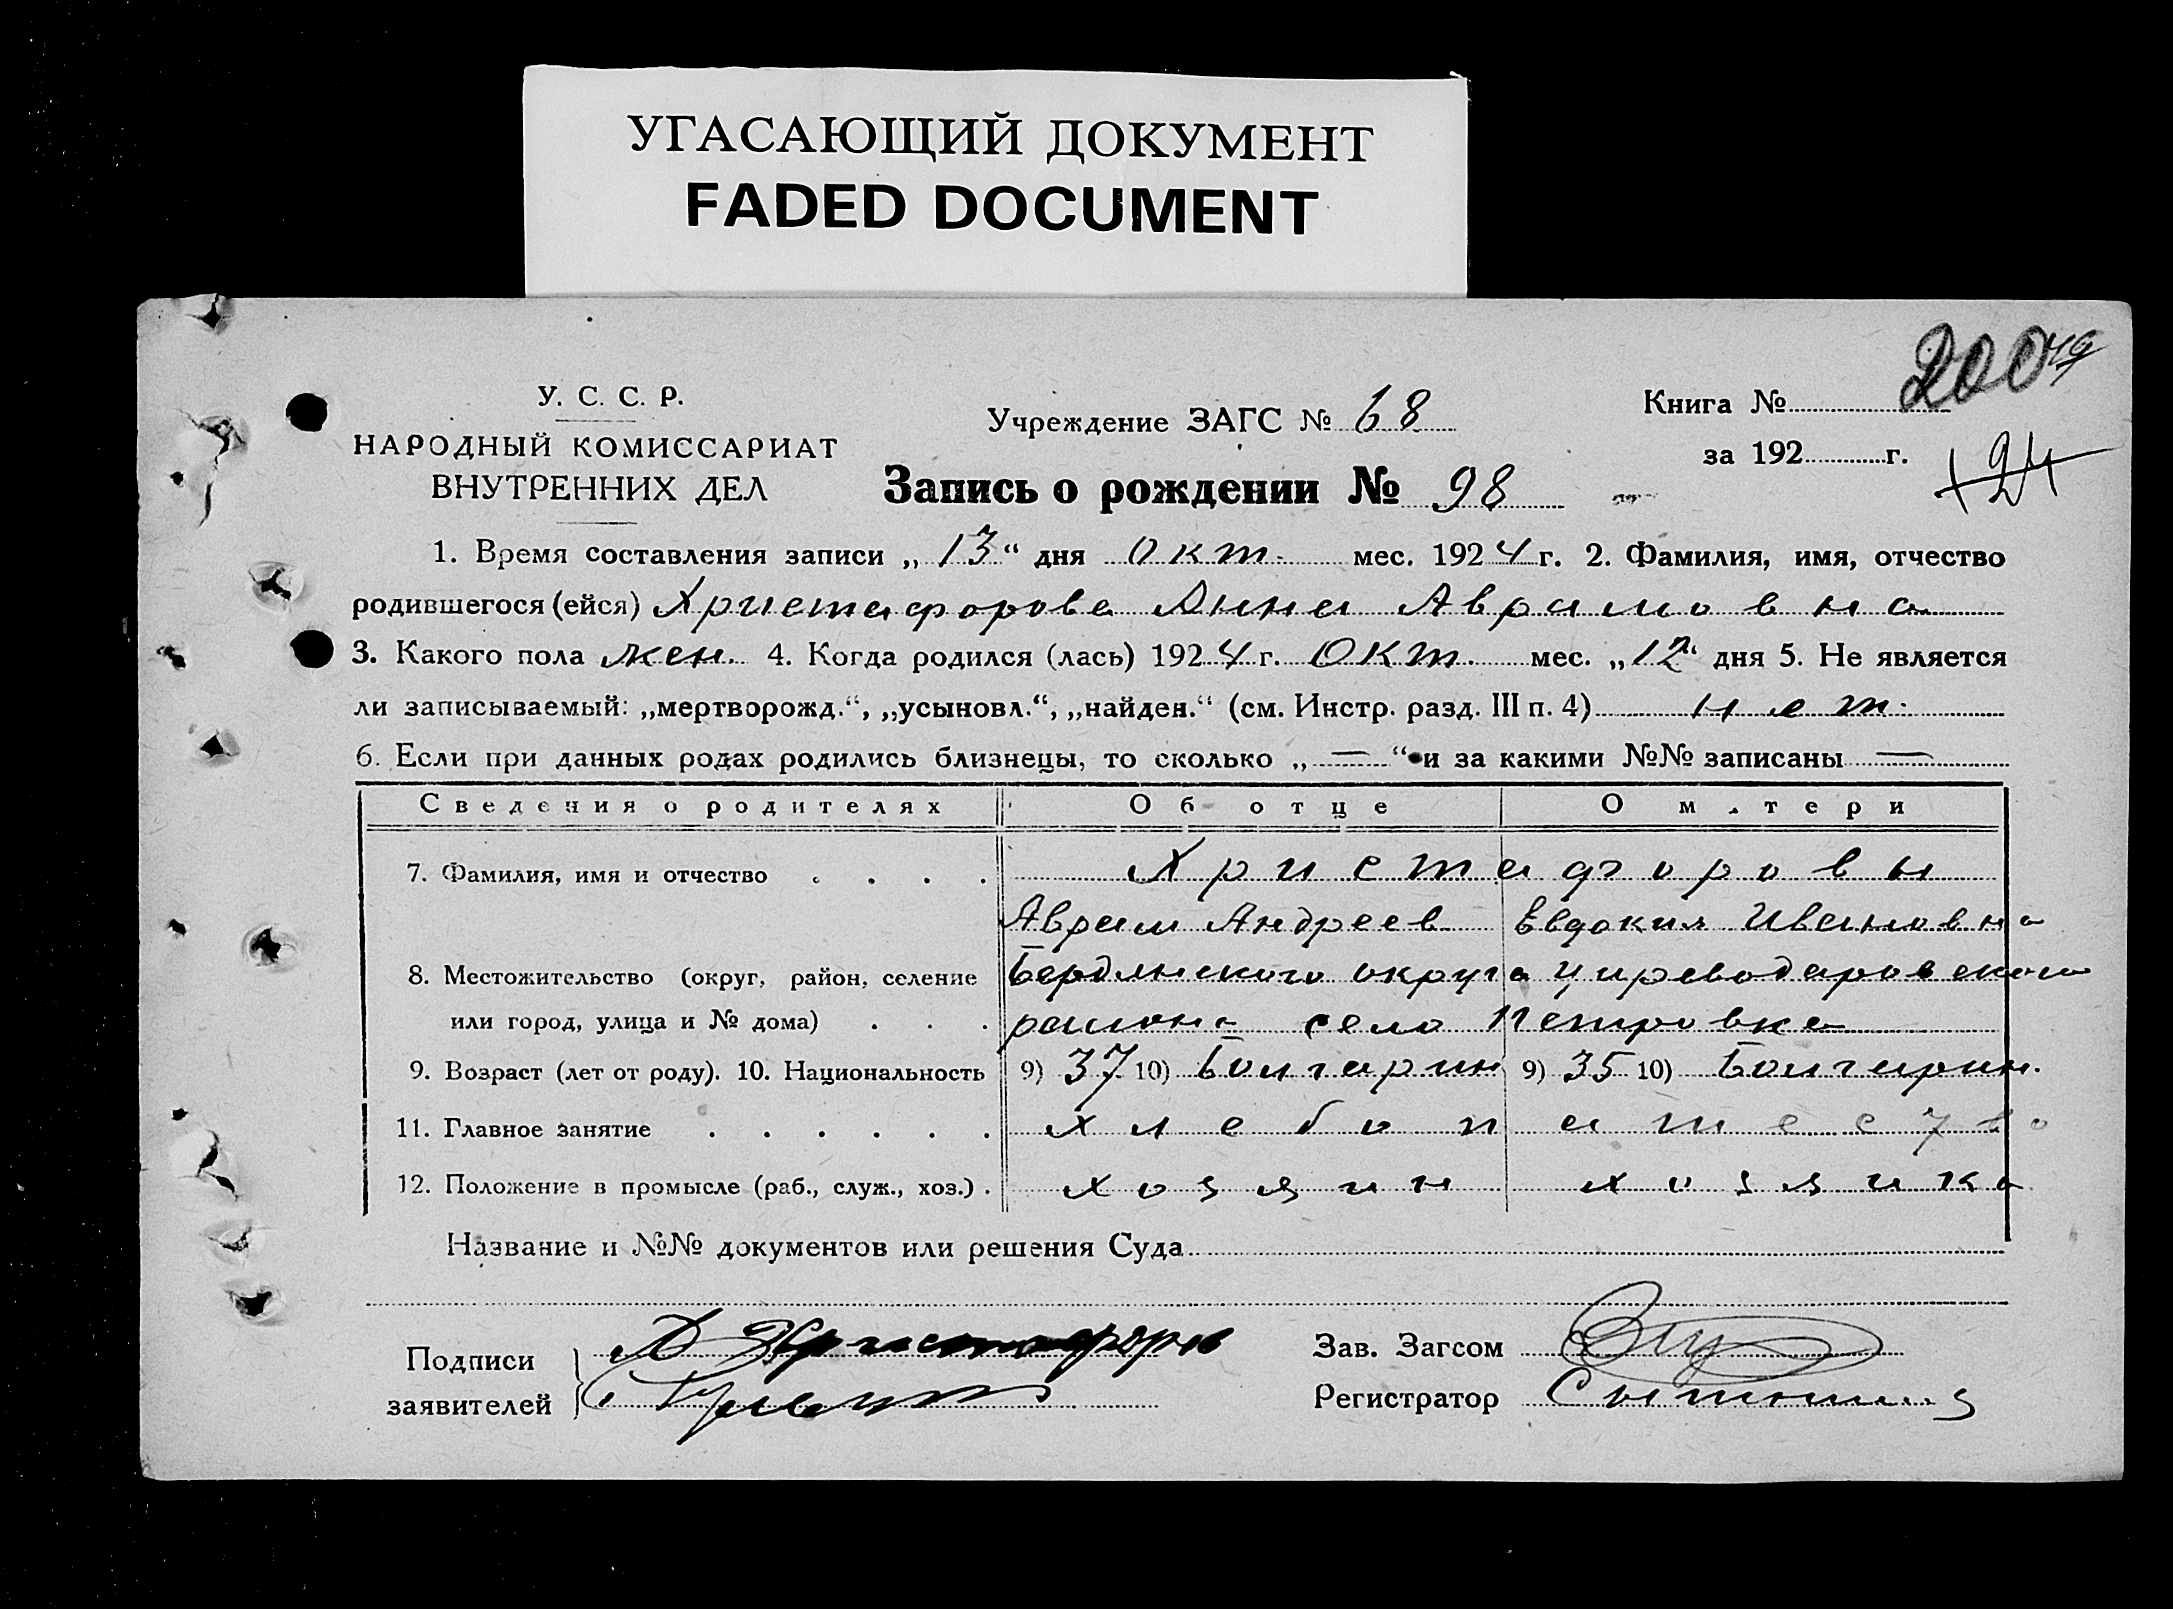 УГАСАЮЩИЙ ДОКУМЕНТ
FADED DOCUMENT
200
У. С. С. Р.
НАРОДНЫЙ КОМИССАРИАТ
ВНУТРЕННИХ ДЕЛ
Учреждение ЗАГС № 68
Книга №
за 192 г.
24
Запись о рождении № 98
1. Время составления записи „13“ дня окт. мес. 1924 г. 2. Фамилия, имя, отчество
родившегося (ейся) Христафорова Анна Аврамовна
3. Какого пола жен. 4. Когда родился (лась) 1924 г. Окт. мес. „12“ дня 5. Не является
ли записываемый: „мертворожд.“, „усыновл.“, „найден.“ (см. Инстр. разд. III п. 4) нет.
6. Если при данных родах родились близнецы, то сколько „—“ и за какими №№ записаны —
Сведения о родителях Об отце О матери
7. Фамилия, имя и отчество Христафоровы
Аврам Андреев Евдокия Ивановна
8. Местожительство (округ, район, селение Бердянского округа Циреводаровского
или город, улица и № дома) района село Петровка
9. Возраст (лет от роду). 10. Национальность 9) 37 10) Болгарин 9) 35 10) Болгарин.
11. Главное занятие хлебопашество
12. Положение в промысле (раб., служ., хоз.) хозяин хозяйка
Название и №№ документов или решения Суда
Подписи А Христофоров
заявителей
Зав. Загсом
Регистратор